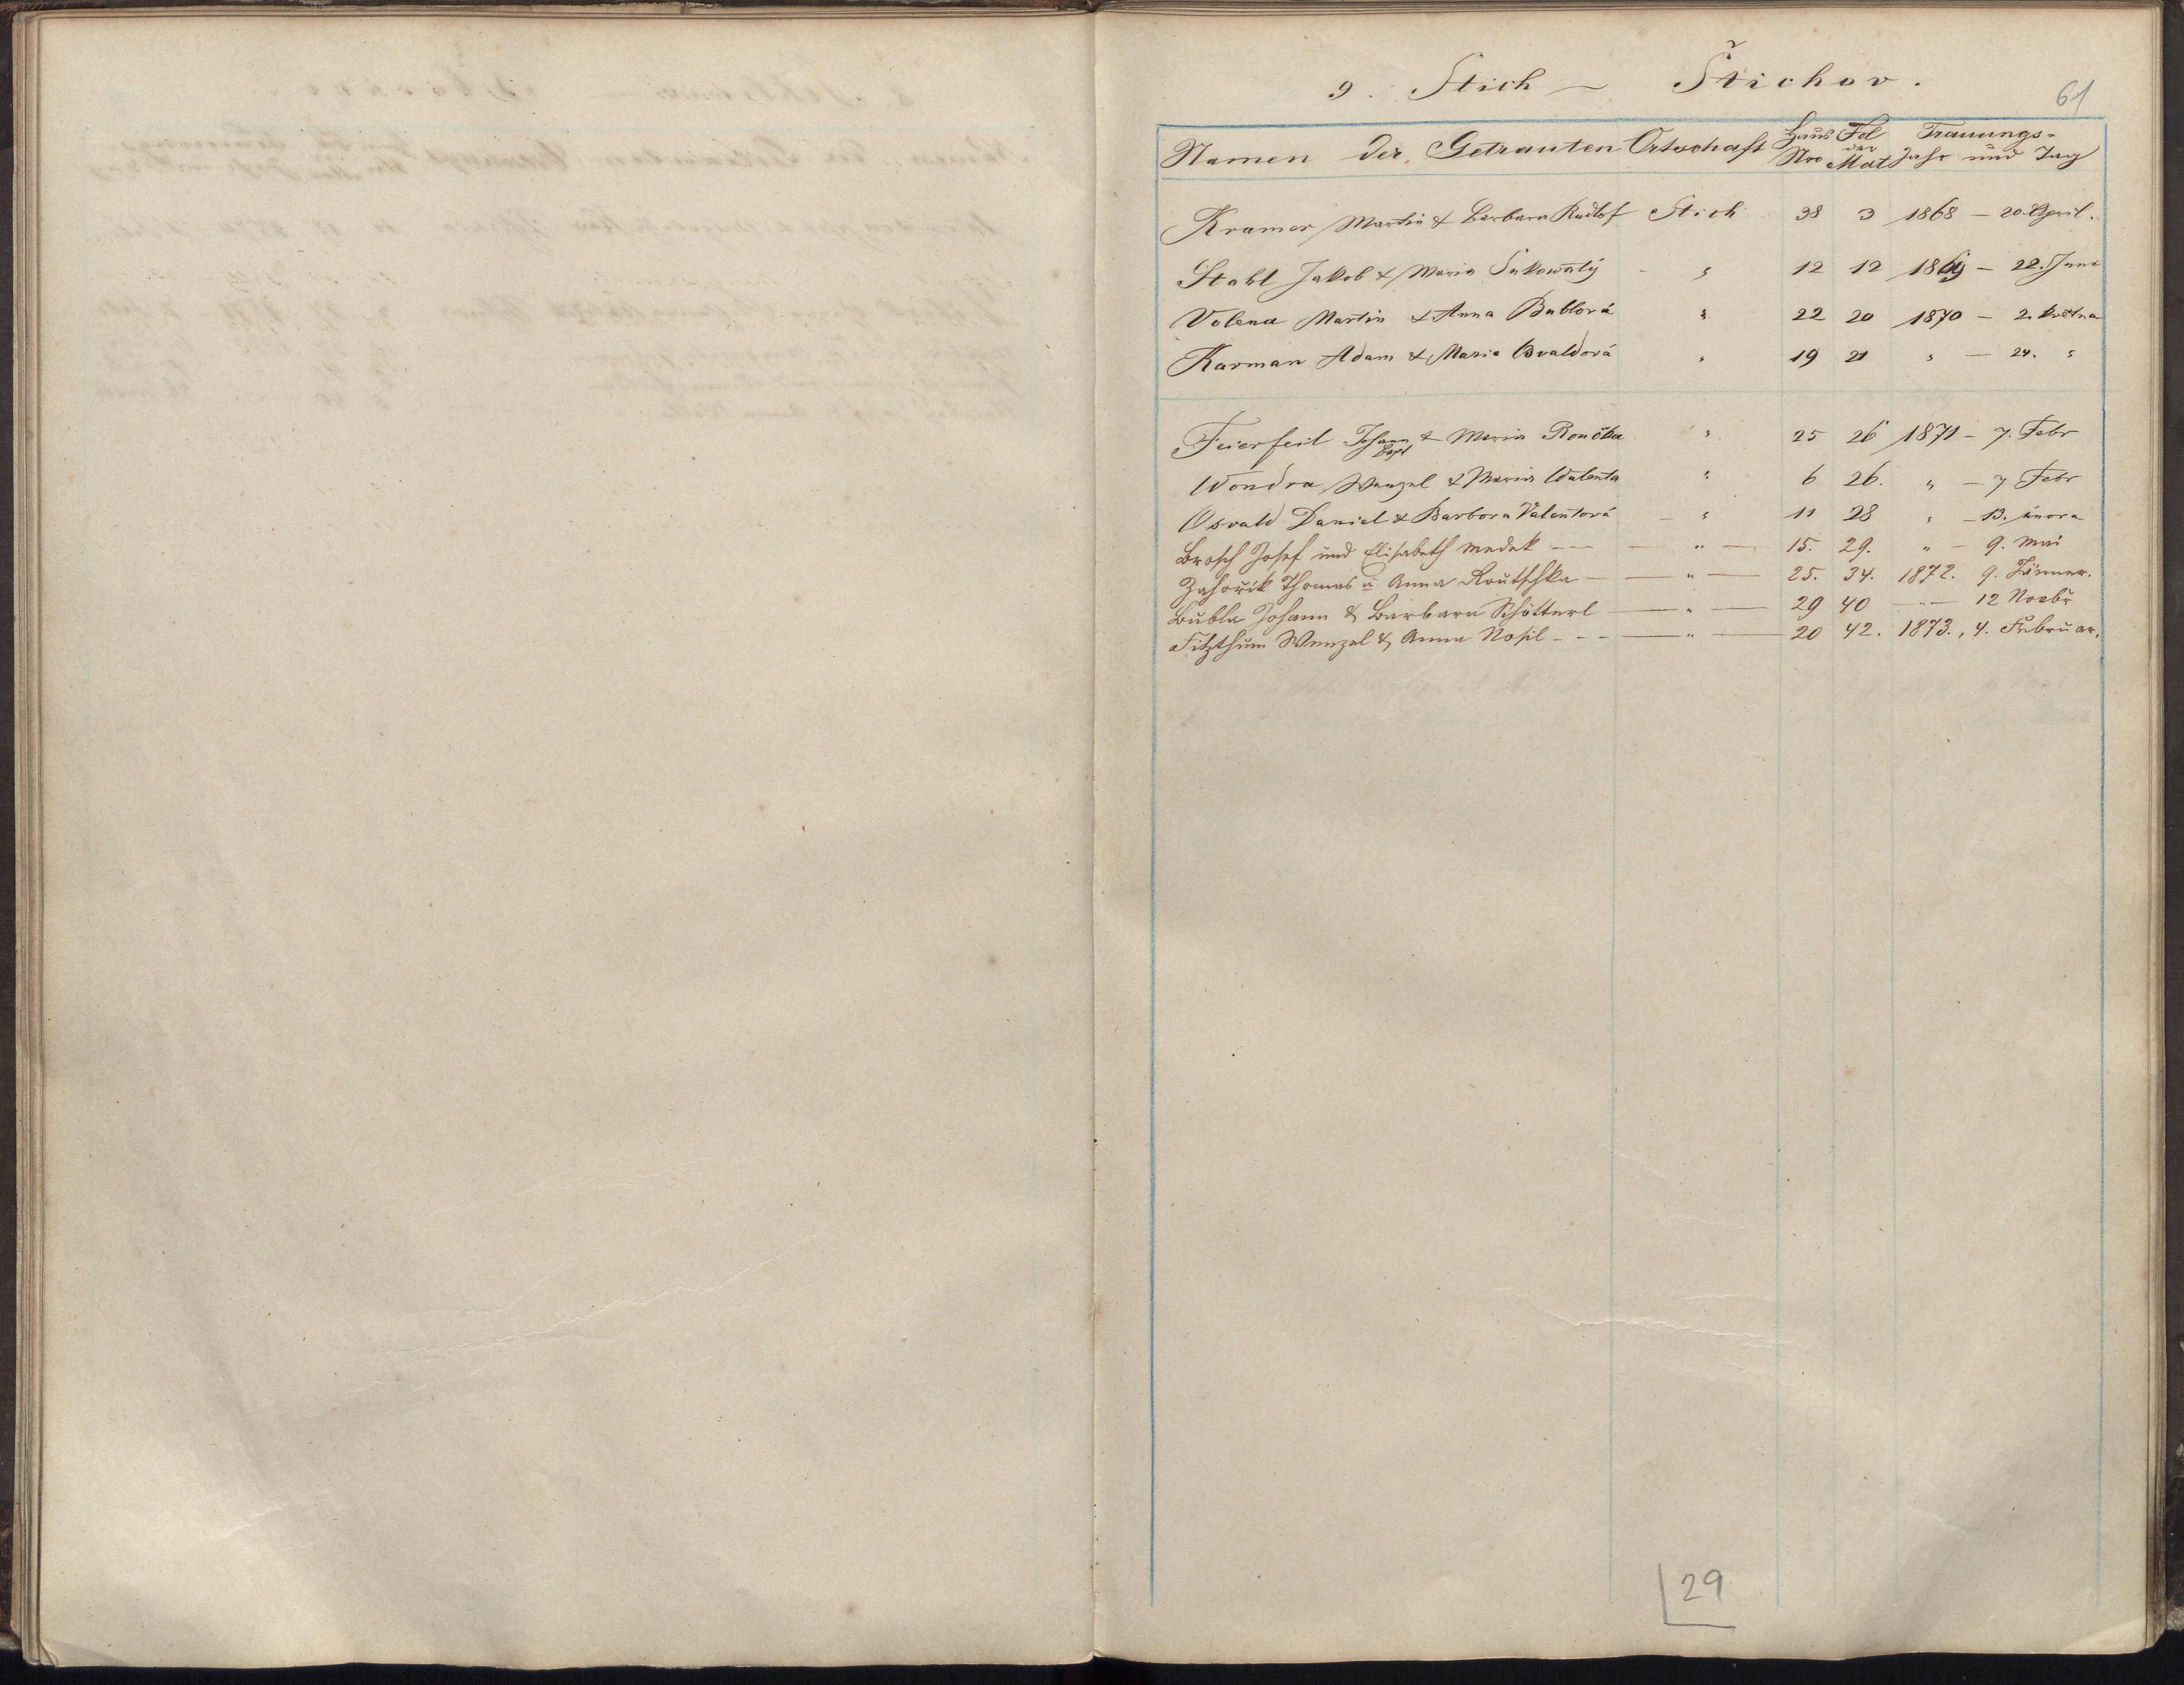 9. Stich — Štichov.
61
Namen der Getrauten Ortschaft Haus Nro Fol der Mat Trauungs- Jahr und Tag
Kramer Martin & Barbara Rudlof Stich 38 3 1868 — 20. April.
Stahl Jakob & Maria - " 12 12 1869 — 22. Juni
Volena Martin & Anna Bublová " 22 20 1870 — 2. května
Karman Adam & Maria Osvaldová " 19 21 " — 24. "
Feierfeil Johann Bapt & Maria Roučka " 25 26 1871 — 7. Febr
Wondra Wenzel & Maria Walenta " 6 26. " — 7 Febr
Osvald Daniel & Barbora Valentová — " 11 28 " — 13. února
Brosch Josef und Elisabeth Medek — — — " — 15. 29. " — 9. Mai
Zahořik Thomas u Anna Routschka — — " — 25. 34. 1872. 9. Jänner.
Bubla Johann & Barbara Schötterl — " — 29 40 — " — 12 Novbr
Fitzthum Wenzel & Anna Nosil - - - — " — 20 42. 1873., 4. Februar.
29